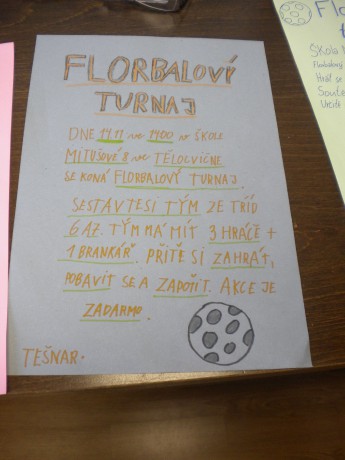 FLORBALOVÝ
TURNAJ
DNE 17.11 ve 1400 v ŠKOLE
MITUŠOVÁ 8 ve TĚLOCVIČNE
SE KONÁ FLORBALOVÝ TURNAJ.
SESTAVTESI TÝM ZE TŘÍD
6 A 7. TÝM MÁ MÍT 3 HRÁČĚ +
1 BRANKÁŘ. PŘÍTE SI ZAHRÁT,
POBAVIT SE A ZAPOTIT. AKCE JE
ZADARMO.
TEŠNAR.
Škola
Florbalový
Hrát se